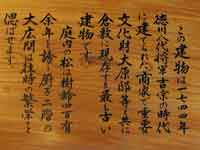 この建物は一七四四年
徳川八代将軍吉宗の時代
に建てられた商家で重要
文化財大原邸等と共に
倉敷に現存する最も古い
建物です。
庭内の松は樹齢四百有
余年を誇り
大広間は往時の繁栄を
偲ばせます。